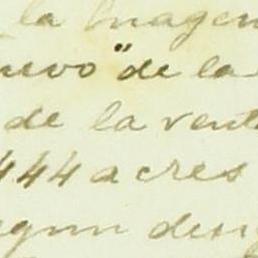 la Imagen
nuevo" de la
de la vent
444 acres
egun desig